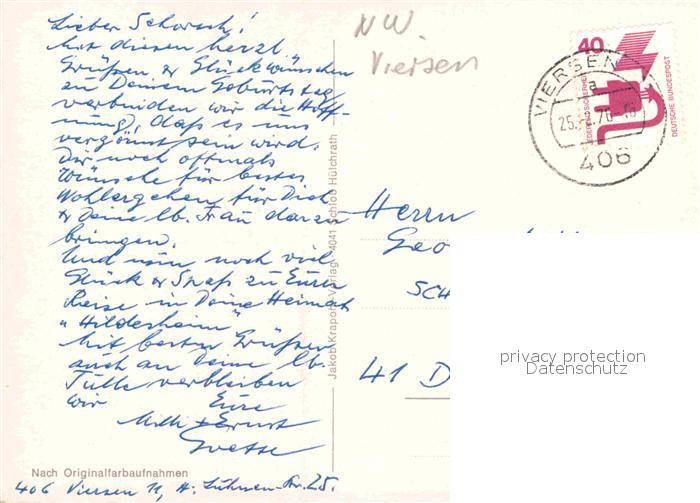 Lieber Schorsch!
Mit diesen herzl.
Grüßen & Glückwünschen
zu Deinem Geburtstag
verbinden wir die Hoff-
nung, daß es uns
vergönnt sein wird,
Dir noch oftmals
Wünsche für bestes
Wohlergehen für Dich
& Deine lb. Frau darzu
bringen.
Und nun noch viel
Glück & Spaß zu Eurer
Reise in Deine Heimat
"Hildesheim"
Mit besten Grüßen
auch an Deine lb.
Tulla verbleiben
wir Eure
Milli & Ernst
Nach Originalfarbaufnahmen
406 Viersen 11,
Jakob Krapohl-Verlag, 4041 Schloß Hülchrath
NW.
Viersen
VIERSEN
a
406
40
JEDERZEIT SICHERHEIT
DEUTSCHE BUNDESPOST
Herrn
Geo
SCH
41 D
privacy protection
Datenschutz